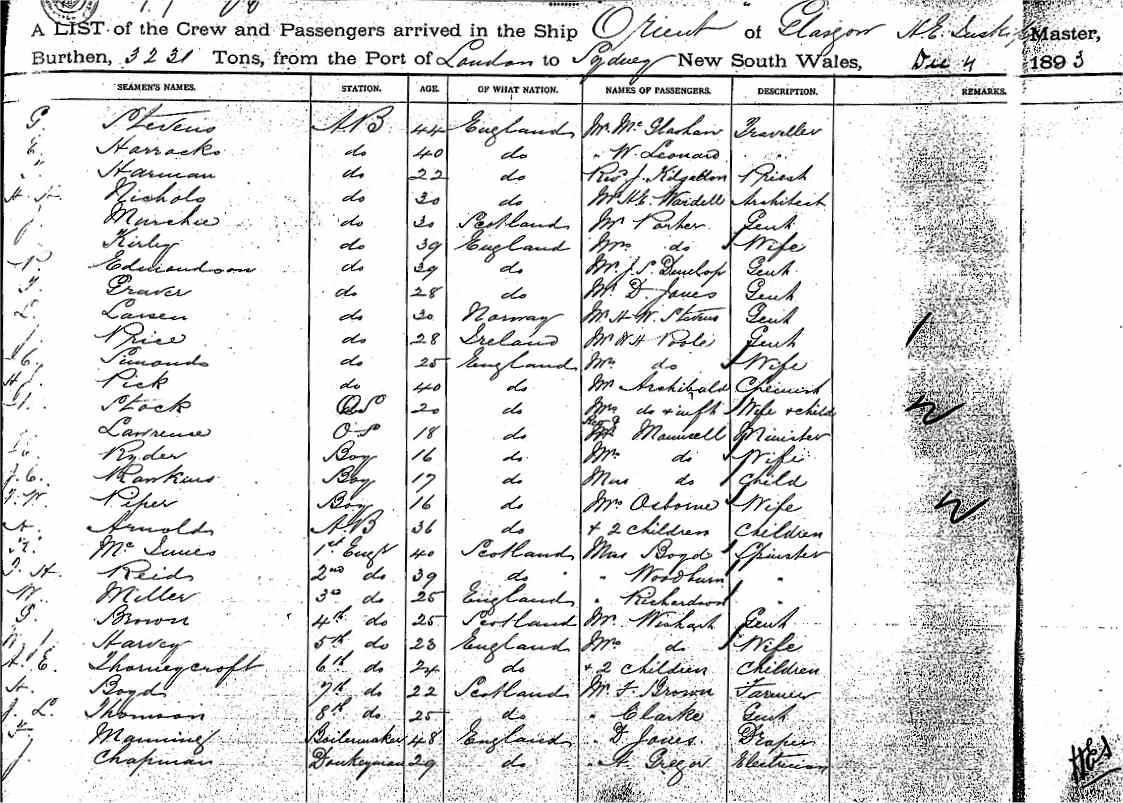 A LIST of the Crew and Passengers arrived in the Ship Orient of Glasgow H.E. Master,
Burthen, 3231 Tons, from the Port of London to Sydney New South Wales, Dec 4 1893
SEAMEN'S NAMES. STATION. AGE. OF WHAT NATION. NAMES OF PASSENGERS. DESCRIPTION. REMARKS.
G. Stevens AB 44 England Mr McGlashan Traveller
E. Harrocks do 40 do " W. Leonard "
Harman do 22 do Revd J. Priest
Nichols do 30 do Mr H.E. Wardell Architect
J. 30 Scotland Mr Parker Gent
Kirby do 39 England Mrs do Wife
Edmondson do 39 do Mr J.S. Dunlop Gent
Graver do 28 do Mr D. Jones Gent
L. Larsen do 30 Norway Mr H.W. Stevens Gent
J. Price do 28 Ireland Mr Poole Gent
Simonds do 25 England Mrs do Wife
H.J. Pick do 40 do Mr Archibald
Stock OS 20 do Mrs do + inft Wife + child
Lawrence OS 18 do Rev Maunsell Minister
Ryder Boy 16 do Mrs do Wife
J.C. Rankins Boy 17 do Miss do Child
J.W. Piper Boy 16 do Mrs Osborne Wife
A. Arnold AB 36 do + 2 children Children
McInnes 1st Engr 40 Scotland Miss Boyd Spinster
J.H. Reid 2nd do 39 do " Woodburn "
W. Miller 3rd do 25 England " Richardson "
G. Brown 4th do 25 Scotland Mr Wishart Gent
Harvey 5th do 23 England Mrs do Wife
A.E. Thorneycroft 6th do 24 do + 2 children Children
A. Boyd 7th do 22 Scotland Mr F. Brown Farmer
J.L. Thomson 8th do 25 do " Clarke Gent
F. Manning Boilermaker 48 England " D. Jones Draper
J. Chapman Donkeyman 29 do " A. Gregor Electrician
HES